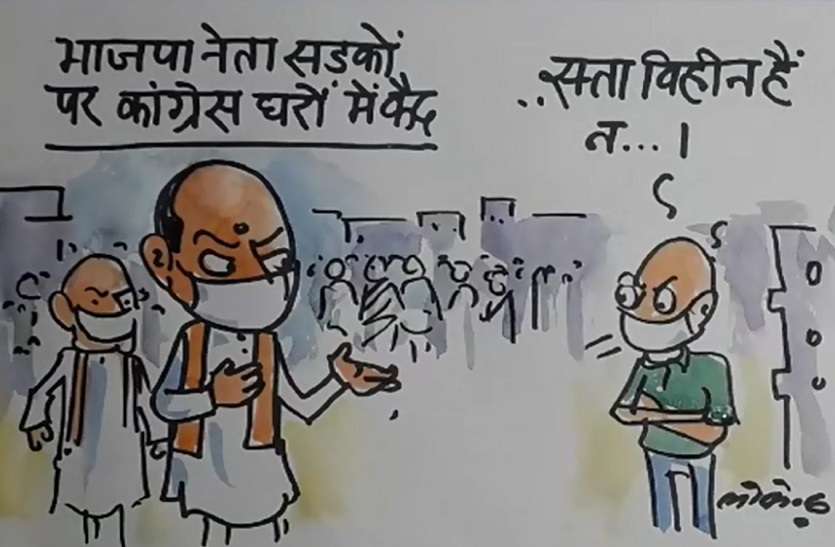 भाजपा नेता सड़कों
पर कांग्रेस घरों में कैद
..सत्ता विहीन हैं
न...।